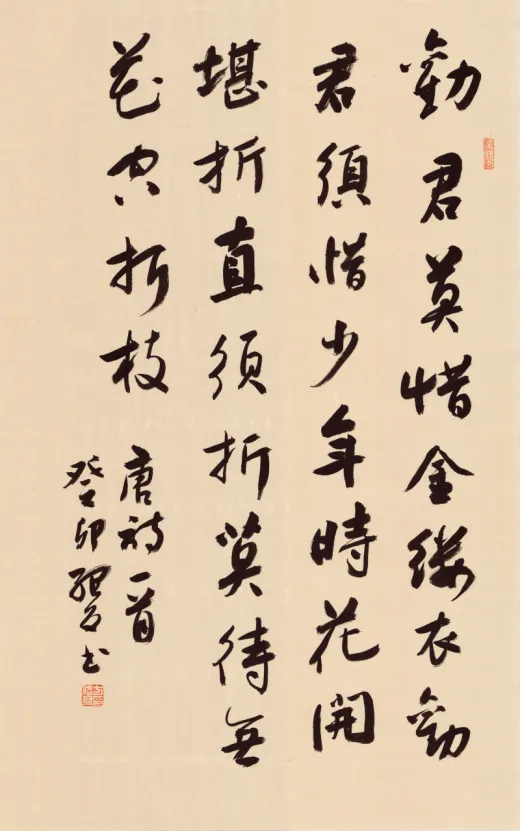 勸君莫惜金縷衣勸
君須惜少年時花開
堪折直須折莫待無
花空折枝 唐詩一首
癸卯 书